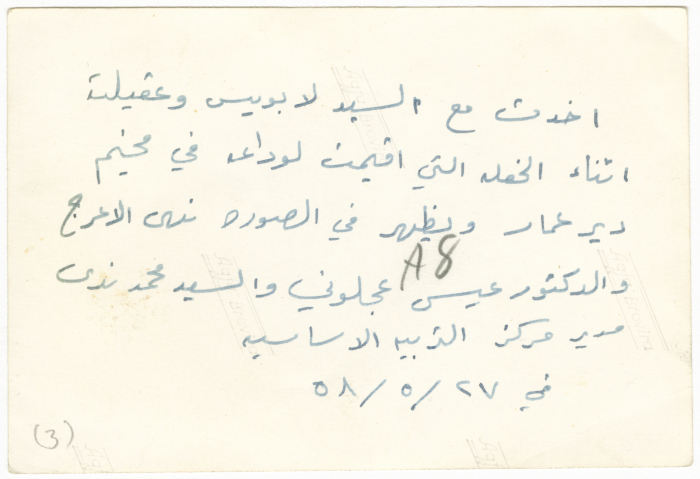 اخدت مع السيد لابويس وعقيلته
اثناء الحفله التي اقيمت لوداعه في مخيم
دير عمار ويظهر في الصوره نهى الاعرج
A8
والدكتور عيسى عجلوني والسيد محمد ندى
مدير مركز التربيه الاساسيه
في ٢٧/٥/٥٨
(3)